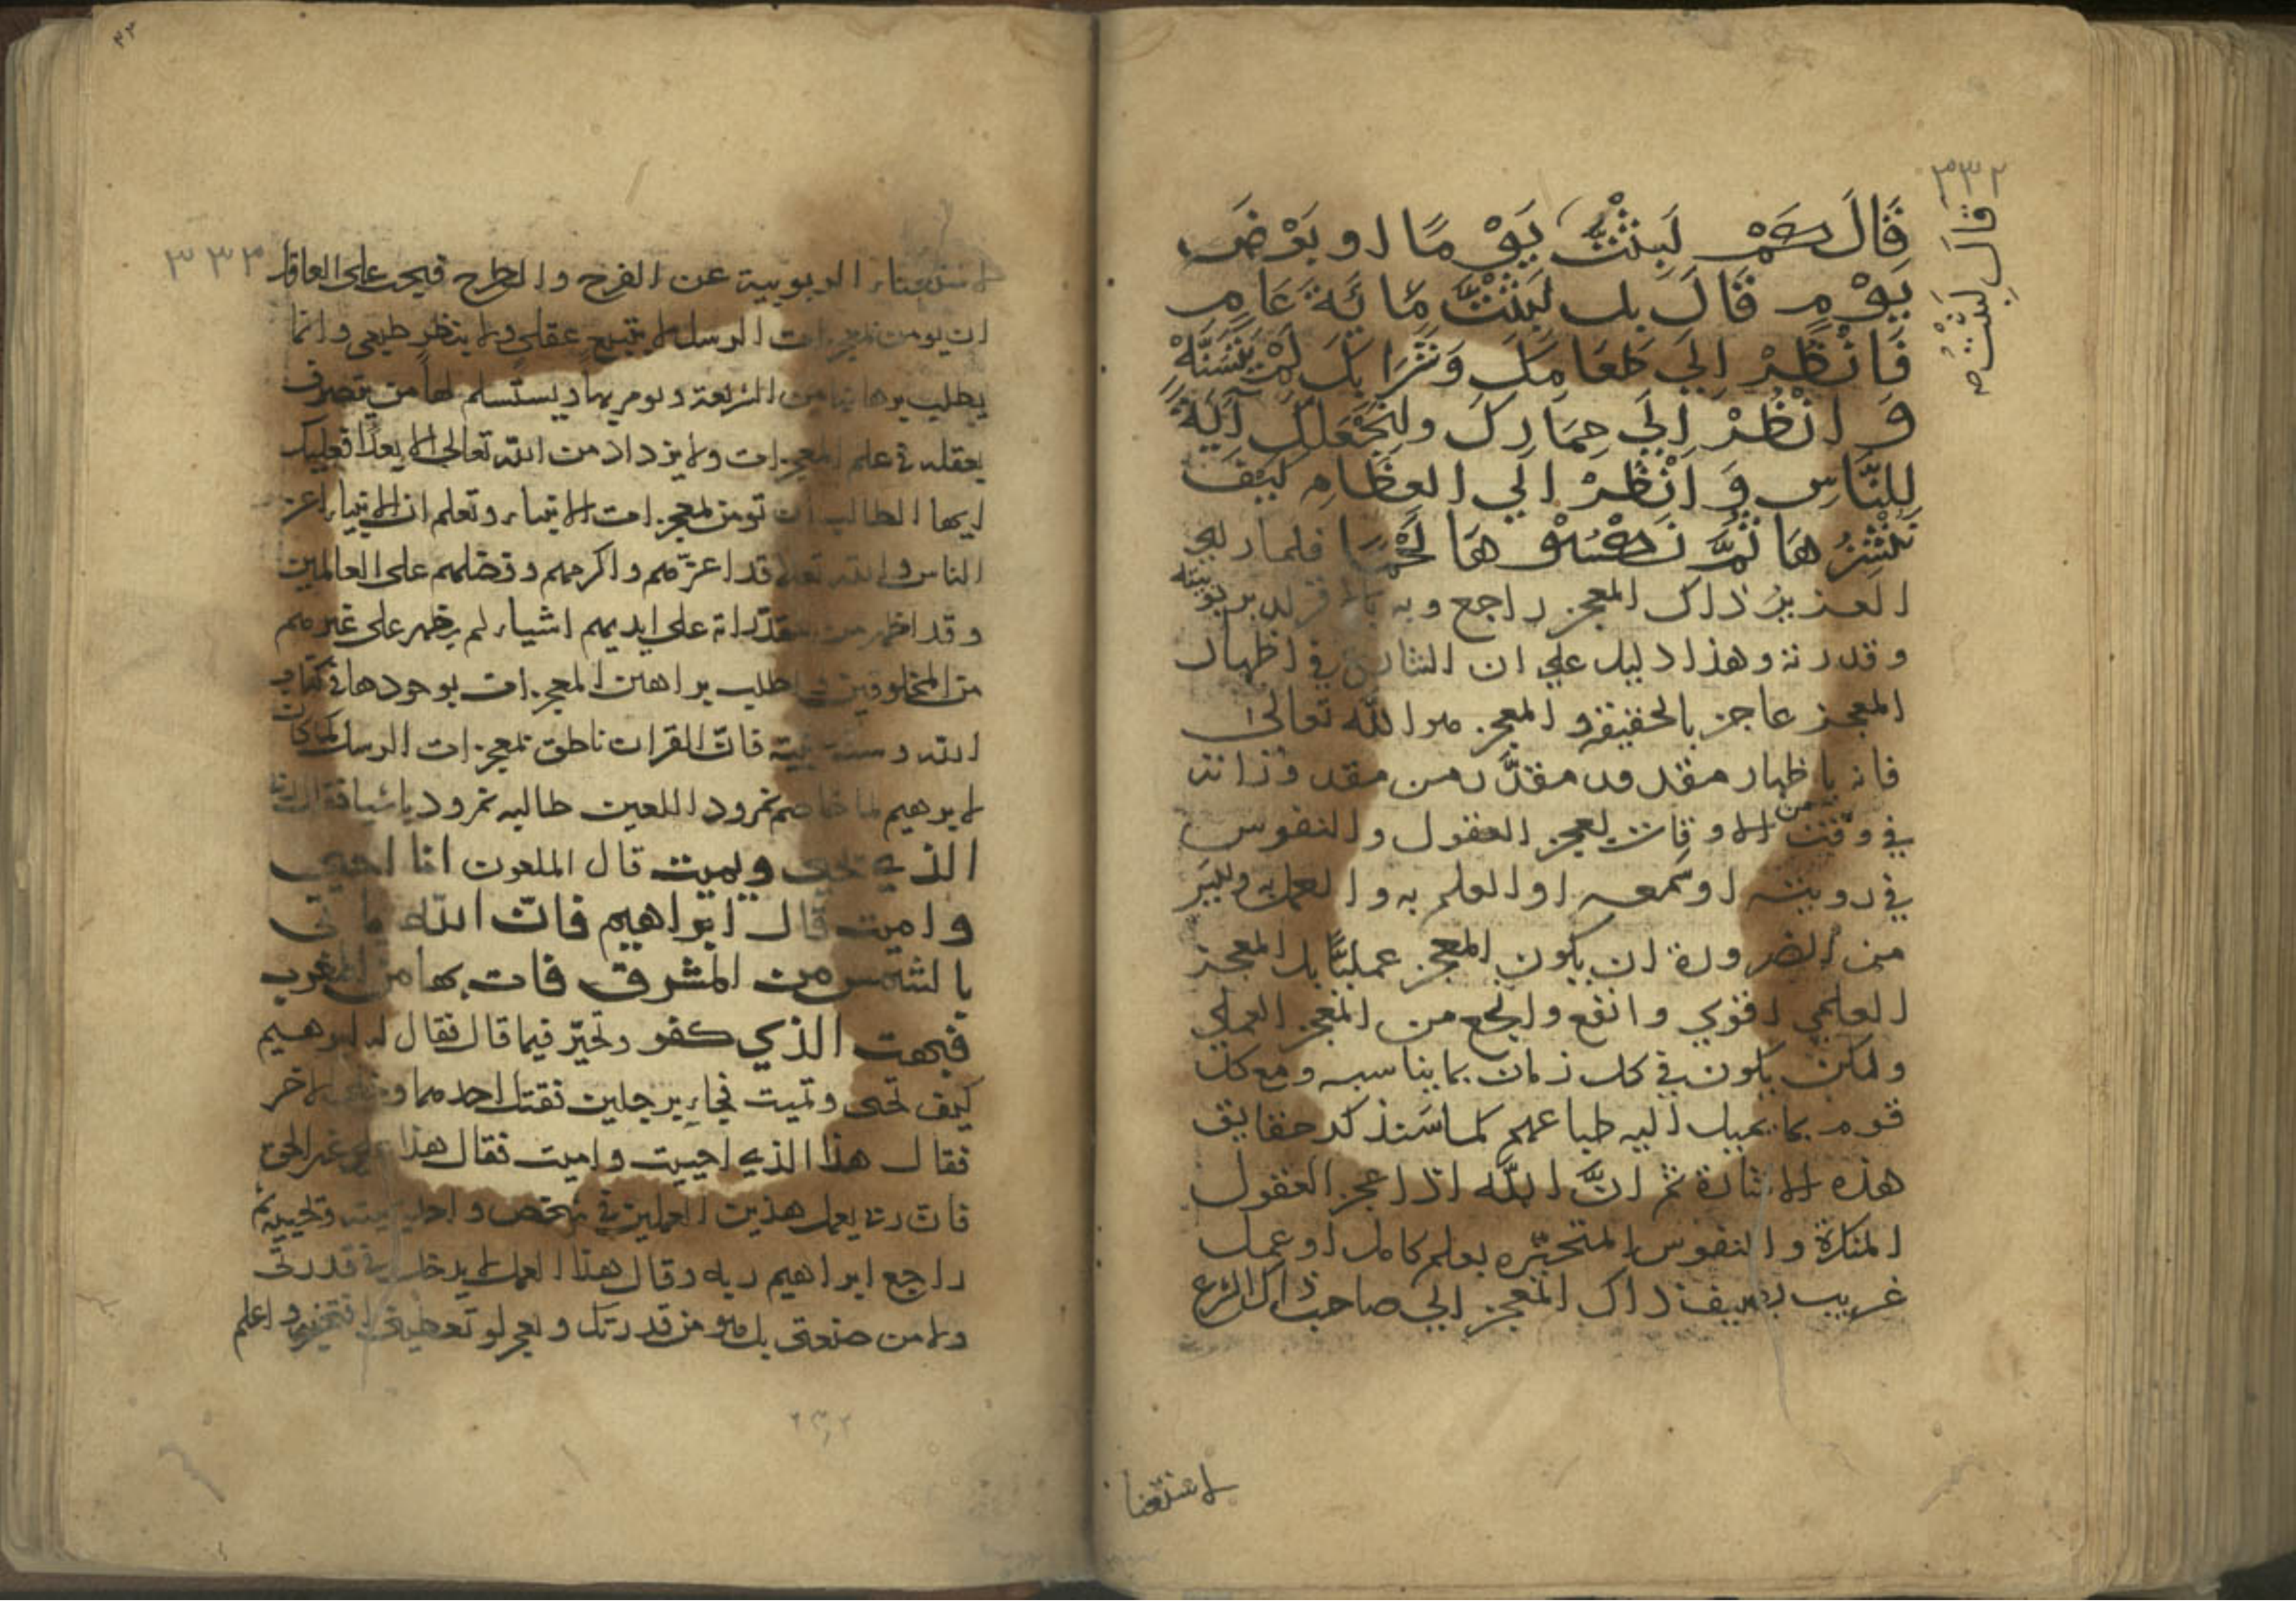 ٣٣٢
قَالَ لَبِثْتُ صه
قَالَ كَمْ لَبِثْتَ يَوْمًا او بَعْضَ
يَوْمٍ قَالَ بل لَبِثْتَ مِائَةَ عَامٍ
فَانْظُرْ اِلَي طَعَامِكَ وَشَرَابِكَ لَمْ يَتَسَنَّهْ
وَانْظُرْ اِلَي حِمَارِكَ ولِنَجْعَلَكَ آيَةً
لِلنَّاسِ وَانْظُرْ الي العِظَامِ كَيْفَ
نُنْشِزُهَا ثُمَّ نَكْسُوْهَا لَحْمًا فلما راي
العزيز ذاك المعجز راجع وبه بربوبيته
وقدرته وهذا دليل علي ان في اظهار
المعجز عاجز بالحقيقة والمعجز هو الله تعالي
فانه باظهار مقدور من مقدوراته
في وقت من الاوقات يعجز العقول والنفوس
في رويته او سمعه او العلم به والعمل به وليس
من الضرورة ان يكون المعجز عمليًّا بل المعجز
العلمي اقوي وانفع وانجع من المعجز العملي
ولكن يكون في كل زمان بما يناسبه ومع كل
قوم بما يميل اليه طباعهم كما سنذكر حقايق
هذه الاشارة ثم انّ الله اذا عجز العقول
المنكرة والنفوس المتحيّره بعلم كامل او عمل
غريب يضيف ذاك المعجز الي صاحب ذاك الشرع
لاستغنا
٣٣٣
لاستغناء الربوبية عن الفرح والطرح فيجب علي العاقل
ان يومن بمعجزات الرسل لا بتتبع عقلي ولا بنظر طبيعي وانما
يطلب برهانها من الشريعة ويومن بها ويستسلم لها من يتصرف
بعقله في علم المعجزات ولا يزداد من الله تعالي الا بعدًا فعليك
ايها الطالب ان تومن بمعجزات الانبياء وتعلم ان الانبياء اعز
الناس والله تعالي قد اعزّهم واكرمهم وفضلهم علي العالمين
وقد اظهر من مقدوراته علي ايديهم اشياء لم يظهر علي غيرهم
من المخلوقين فاطلب براهين المعجزات بوجودها في كتاب
الله وسنة نبيّه فانّ القران ناطق بمعجزات الرسل كما كان
لابرهيم لما خاصم نمرود اللعين طالبه نمرود باشيا فقال
الذي يحيي ويميت قال الملعون انا احيي
واميت قال ابراهيم فانّ الله ياتي
بالشمس من المشرق فات بها من المغرب
فبهت الذي كفر وتحيّر فيما قال فقال له ابرهيم
كيف تحيي وتميت فجاء برجلين فقتل احدهما الاخر
فقال هذا الذي احييت واميت فقال هذا غير الحق
فان ربي يعمل هذين العملين في شخص واحد يميته ويحييه ثم
راجع ابراهيم ربه وقال هذا العمل لا يدخل في قدرتي
ولا من صنعتي بل هو من قدرتك واعلم